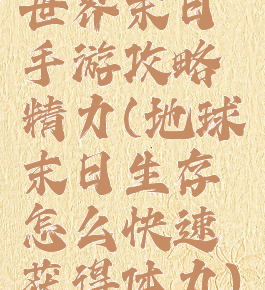 世界末日
手游攻略
精力(地球
末日生存
怎么快速
获得体力)